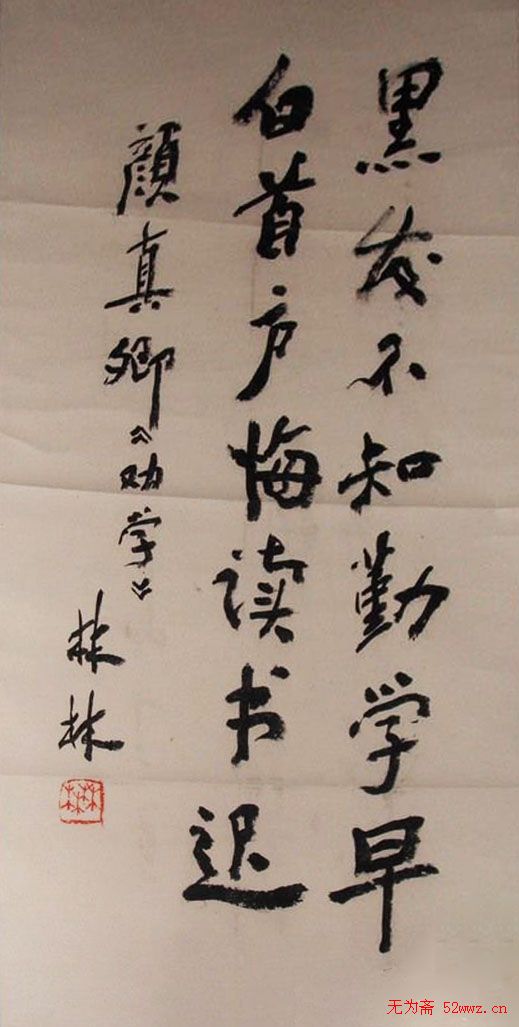 黑发不知勤学早
白首方悔读书迟
顔真卿《劝学》
林林
林林
无为斋 52wwz.cn